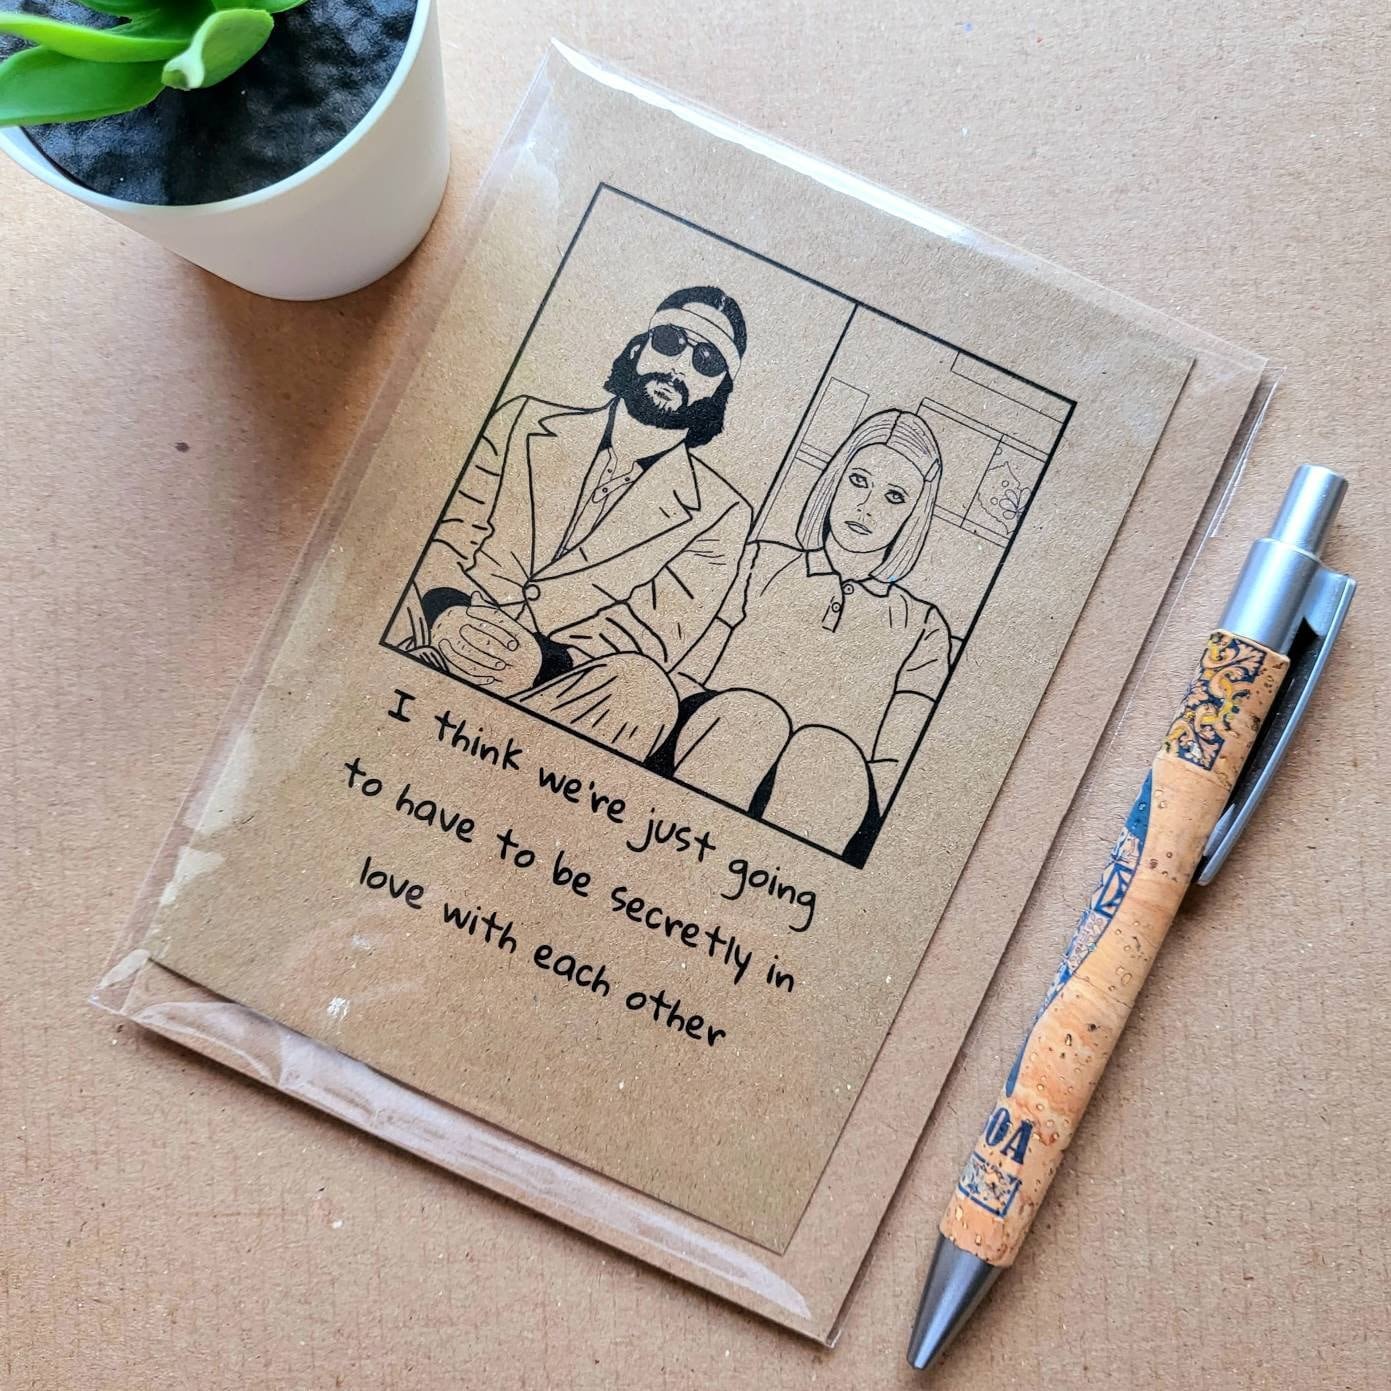 I think we're just going
to have to be secretly in
love with each other
OA